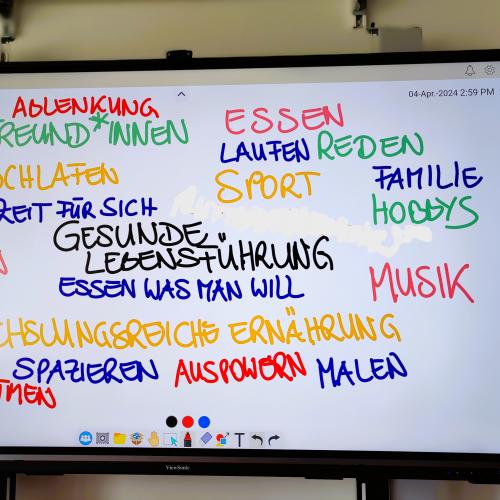 ABLENKUNG
04-Apr.-2024 2:59 PM
REUND*INNEN
ESSEN
LAUFEN REDEN
CHLAFEN
SPORT
FAMILIE
ZEIT FÜR SICH
HOBBYS
GESUNDE
LEBENSFÜHRUNG
ESSEN WAS MAN WILL
MUSIK
CHSLUNGSREICHE ERNÄHRUNG
SPAZIEREN AUSPOWERN MALEN
TMEN
ViewSonic